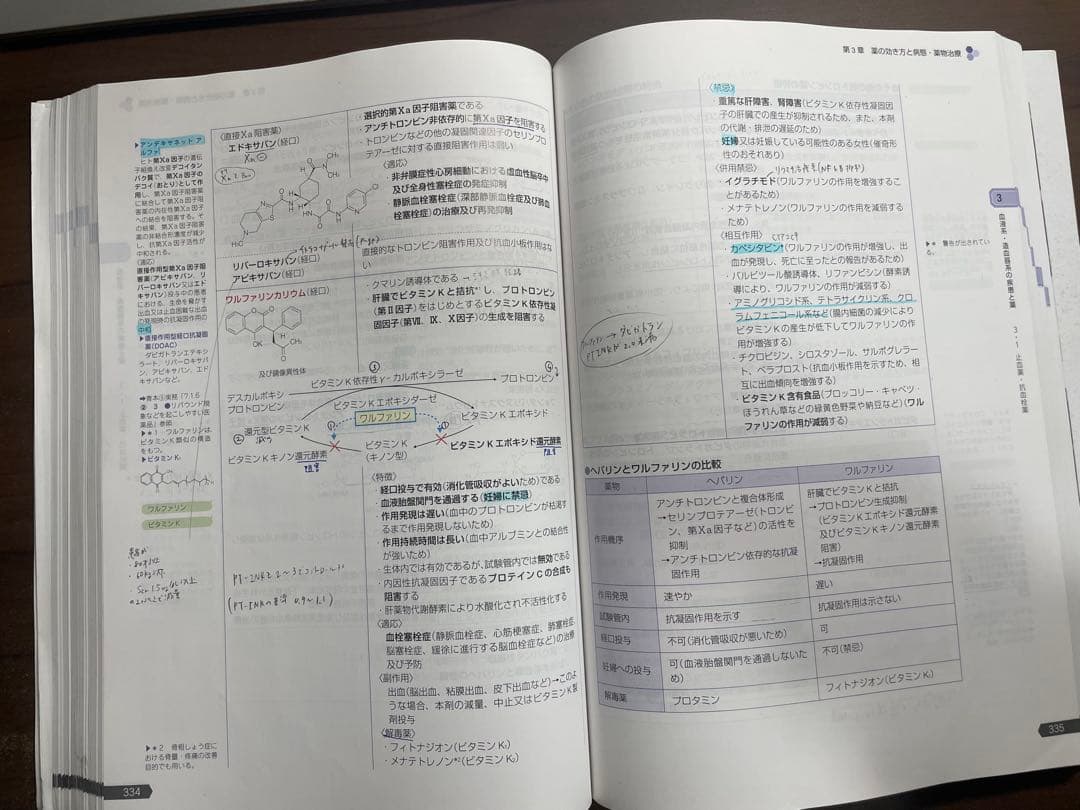 ▶アンデキサネット アルファ
ヒト第Xa因子の遺伝
子組換え改変デコイタン
パク質で、第Xa因子の
デコイ(おとり)として作
用し、第Xa因子阻害薬
に結合して第Xa因子阻害
薬の内在性第Xa因子
への結合を阻害する。そ
の結果、第Xa因子阻害薬
の非結合形濃度が減少
し、抗第Xa因子活性が
中和される。
〈適応〉
直接作用型第Xa因子阻
害薬(アピキサバン、リ
バーロキサバン又はエド
キサバン)投与中の患者
における、生命を脅かす
出血又は止血困難な出血
の発現時の抗凝固作用の
中和
▶直接作用型経口抗凝固
薬(DOAC)
ダビガトランエテキシ
ラート、リバーロキサバ
ン、アピキサバン、エド
キサバンなど。
➡青本⑨実務「7.1.6
② 3 ●リバウンド現
象などを起こしやすい医
薬品」参照
▶*1 ワルファリンは、
ビタミンK類似の構造
をもつ。
▶ビタミンK₁
ワルファリン
ビタミンK
▶*2 骨粗しょう症に
おける骨量・疼痛の改善
目的でも用いる。
334
〈直接Xa阻害薬〉
エドキサバン(経口)
リバーロキサバン(経口)
アピキサバン(経口)
ワルファリンカリウム(経口)
及び鏡像異性体
・選択的第Xa因子阻害薬である
・アンチトロンビン非依存的に第Xa因子を阻害する
・トロンビンなどの他の凝固関連因子のセリンプロ
テアーゼに対する直接阻害作用は弱い
〈適応〉
・非弁膜症性心房細動における虚血性脳卒中
及び全身性塞栓症の発症抑制
・静脈血栓塞栓症(深部静脈血栓症及び肺血
栓塞栓症)の治療及び再発抑制
直接的なトロンビン阻害作用及び抗血小板作用はな
い
・クマリン誘導体である
・肝臓でビタミンKと拮抗*¹し、プロトロンビン
(第Ⅱ因子)をはじめとするビタミンK依存性凝
固因子(第Ⅶ、Ⅸ、Ⅹ因子)の生成を阻害する
ビタミンK依存性γ-カルボキシラーゼ
デスカルボキシ
プロトロンビン
プロトロンビン
ビタミンKエポキシダーゼ
ワルファリン
②還元型ビタミンK
ビタミンKエポキシド
ビタミンK
(キノン型)
ビタミンKキノン還元酵素
阻害
ビタミンKエポキシド還元酵素
阻害
〈特徴〉
・経口投与で有効(消化管吸収がよいため)である
・血液胎盤関門を通過する(妊婦に禁忌)
・作用発現は遅い(血中のプロトロンビンが枯渇す
るまで作用発現しないため)
・作用持続時間は長い(血中アルブミンとの結合性
が強いため)
・生体内では有効であるが、試験管内では無効である
・内因性抗凝固因子であるプロテインCの合成も
阻害する
・肝薬物代謝酵素により水酸化され不活性化する
〈適応〉
血栓塞栓症(静脈血栓症、心筋梗塞症、肺塞栓症、
脳塞栓症、緩徐に進行する脳血栓症など)の治療
及び予防
〈副作用〉
出血(脳出血、粘膜出血、皮下出血など)→このよ
うな場合、本剤の減量、中止又はビタミンK製
剤投与
〈解毒薬〉
・フィトナジオン(ビタミンK₁)
・メナテトレノン*²(ビタミンK₂)
PT-INRを2〜3でコントロールする
(PT-INRの基準 0.9〜1.1)
第3章 薬の効き方と病態・薬物治療
〈禁忌〉
・重篤な肝障害、腎障害(ビタミンK依存性凝固因
子の肝臓での産生が抑制されるため、また、本剤
の代謝・排泄の遅延のため)
・妊婦又は妊娠している可能性のある女性(催奇形
性のおそれあり)
〈併用禁忌〉
・イグラチモド(ワルファリンの作用を増強するこ
とがあるため)
・メナテトレノン(ワルファリンの作用を減弱する
ため)
〈相互作用〉
・カペシタビン†(ワルファリンの作用が増強し、出
血が発現し、死亡に至ったとの報告があるため)
・バルビツール酸誘導体、リファンピシン(酵素誘
導により、ワルファリンの作用が減弱する)
・アミノグリコシド系、テトラサイクリン系、クロ
ラムフェニコール系など(腸内細菌の減少により
ビタミンKの産生が低下してワルファリンの作
用が増強する)
・チクロピジン、シロスタゾール、サルポグレラー
ト、ベラプロスト(抗血小板作用を示すため、相
互に出血傾向を増強する)
・ビタミンK含有食品(ブロッコリー・キャベツ・
ほうれん草などの緑黄色野菜や納豆など)(ワル
ファリンの作用が減弱する)
ワルファリン→ダビガトラン
PT-INRが2.0未満
警告が出されてい
る。
3
血液系・造血器系の疾患と薬
3・1 止血薬・抗血栓薬
●ヘパリンとワルファリンの比較
薬物 ヘパリン ワルファリン
作用機序
アンチトロンビンと複合体形成
→セリンプロテアーゼ(トロンビ
ン、第Xa因子など)の活性を
抑制
→アンチトロンビン依存的な抗凝
固作用
肝臓でビタミンKと拮抗
→プロトロンビン生成抑制
(ビタミンKエポキシド還元酵素
及びビタミンKキノン還元酵素
阻害)
→抗凝固作用
作用発現 速やか 遅い
試験管内 抗凝固作用を示す 抗凝固作用は示さない
経口投与 不可(消化管吸収が悪いため) 可
妊婦への投与 可(血液胎盤関門を通過しないた
め) 不可(禁忌)
解毒薬 プロタミン フィトナジオン(ビタミンK₁)
335